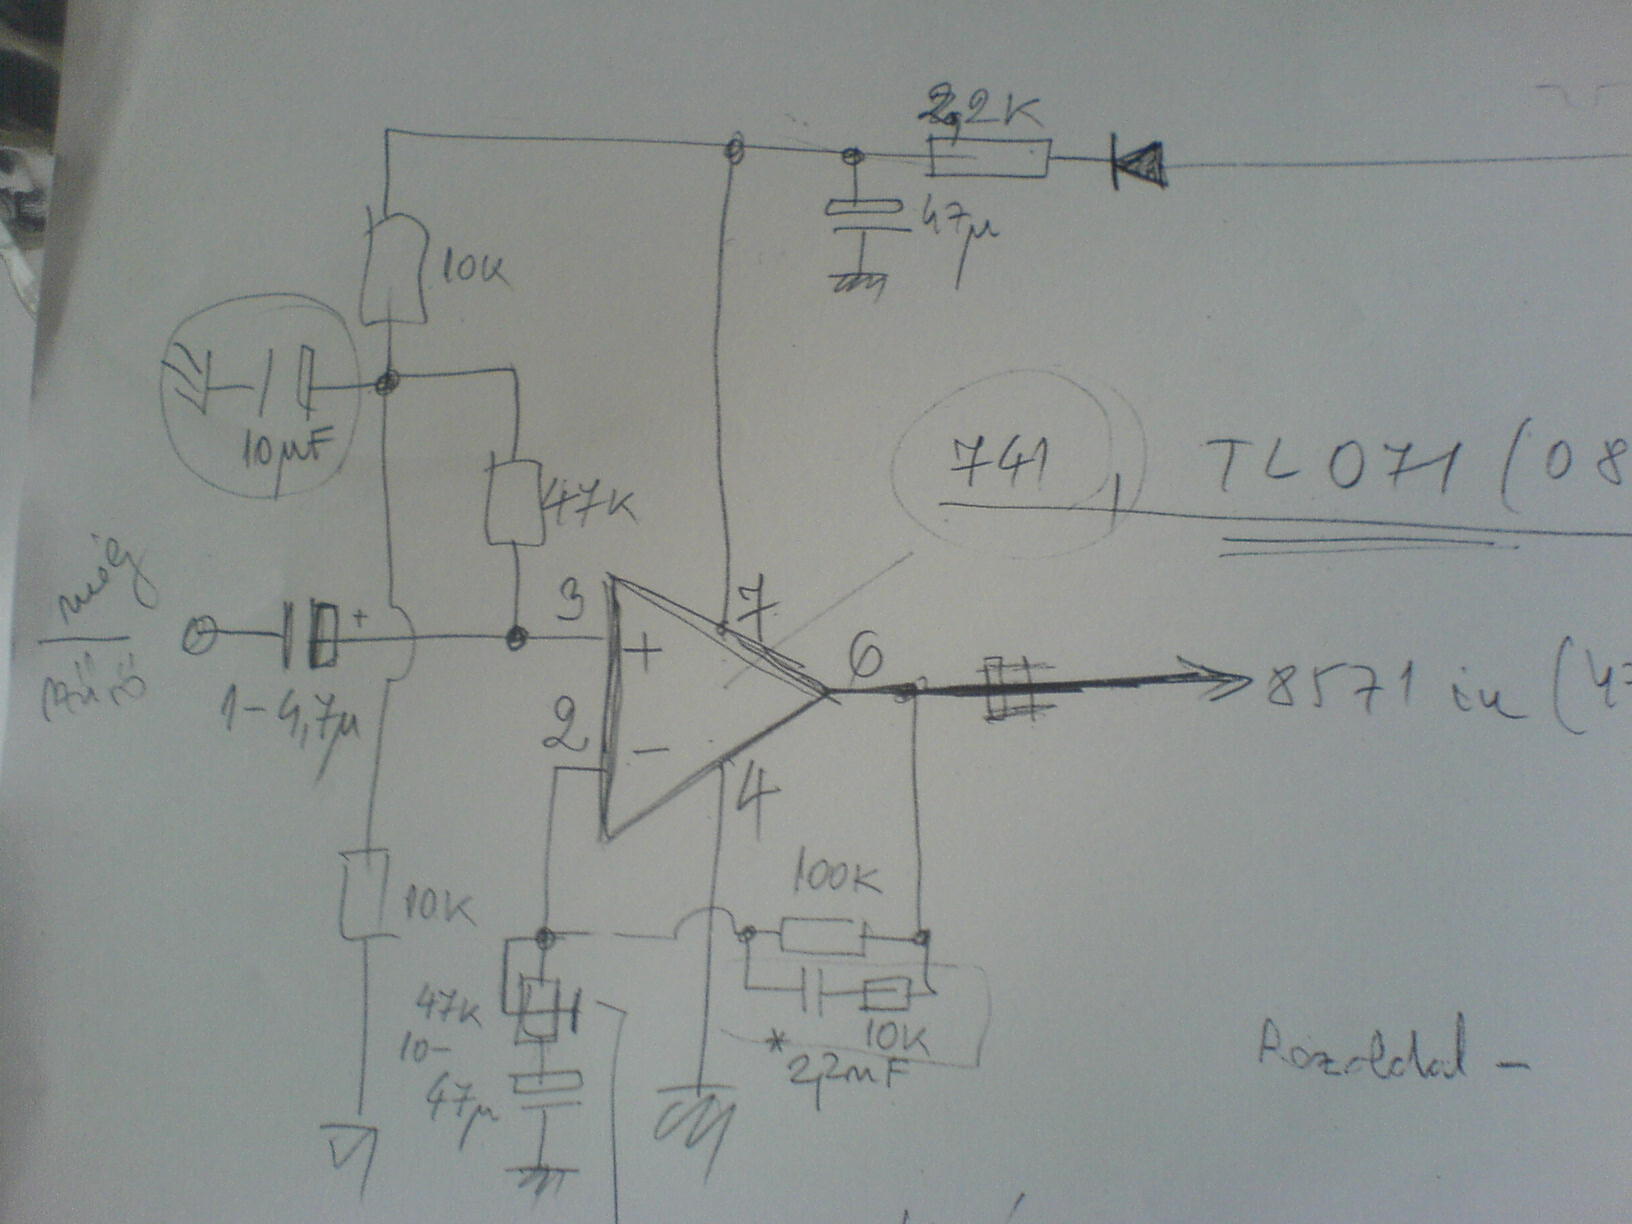 2,2K
47µ
10K
10µF
741, TL071 (08
47K
még
szűrő
+
1-4,7µ
3
+
7
6
2
-
4
8571 in (47
100K
10K
47K
10-
47µ
*
10K
2,2nF